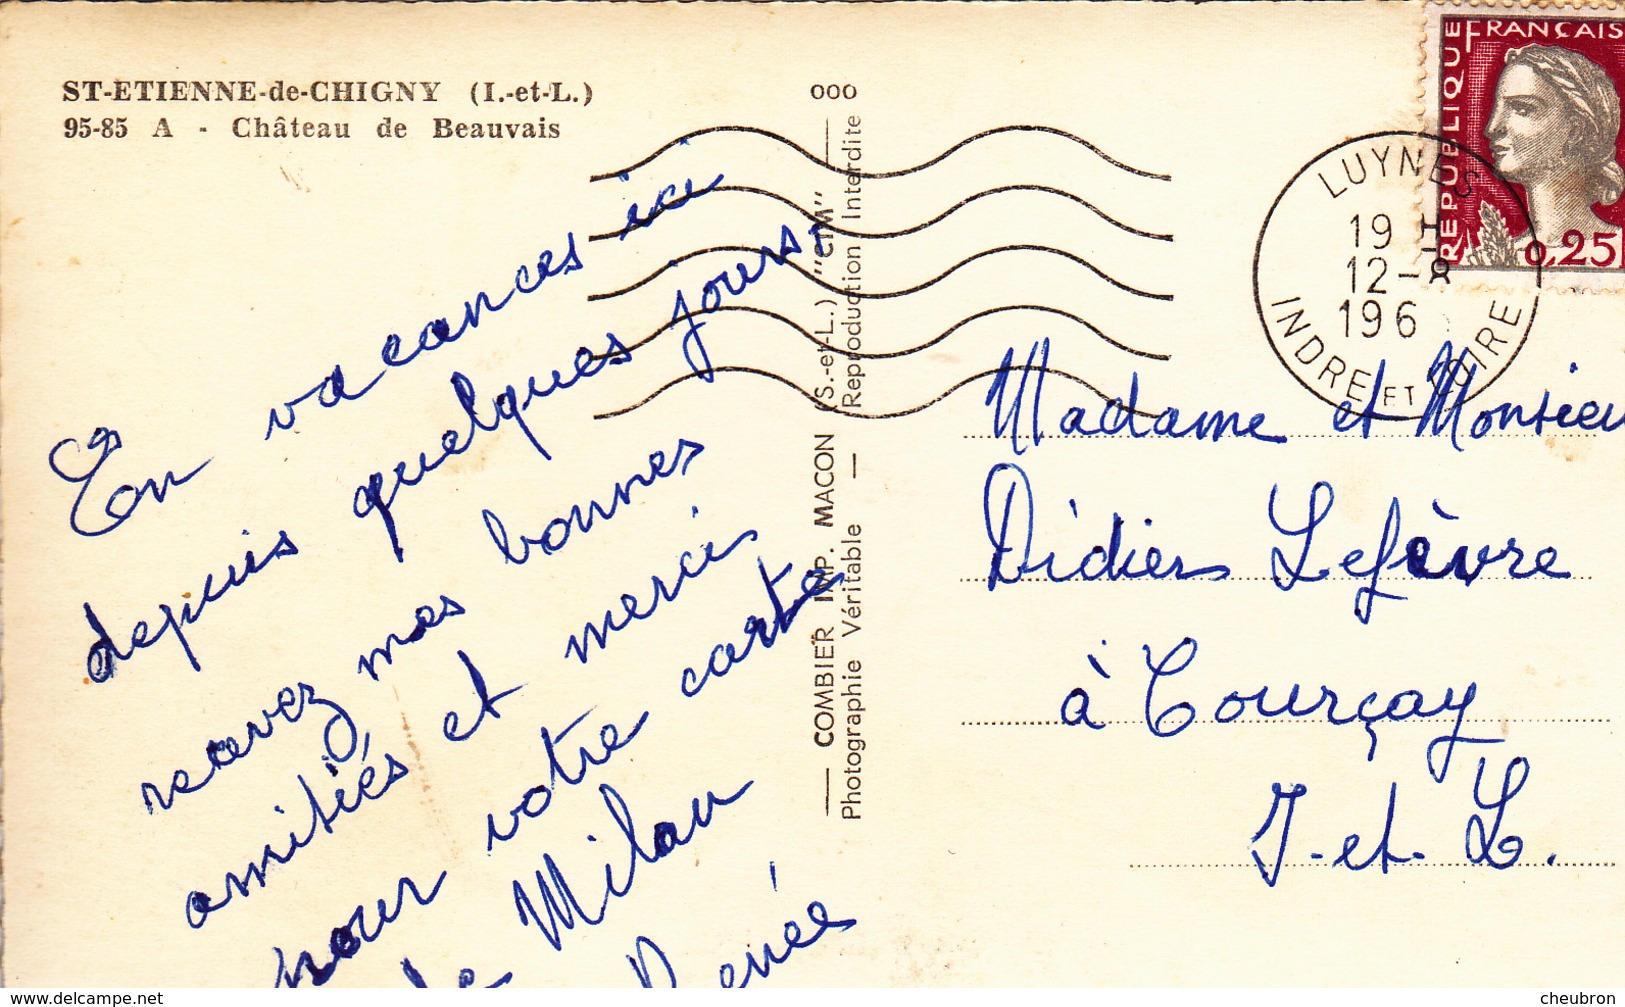 ST-ETIENNE-de-CHIGNY (I.-et-L.)
95-85 A - Château de Beauvais
En vacances ici
depuis quelques jours.
recevez mes bonnes
amitiés et mercis
pour votre carte
de Milan
Renée
ooo
COMBIER IMP. MACON (S.-et-L.) "CIM"
Photographie Véritable — Reproduction Interdite
REPUBLIQUE
FRANÇAISE
0,25
LUYNES
19 H
12-8
196
INDRE ET LOIRE
Madame et Monsieu
Didier Lefèvre
à Courçay
I-et-L.
www.delcampe.net
cheubron